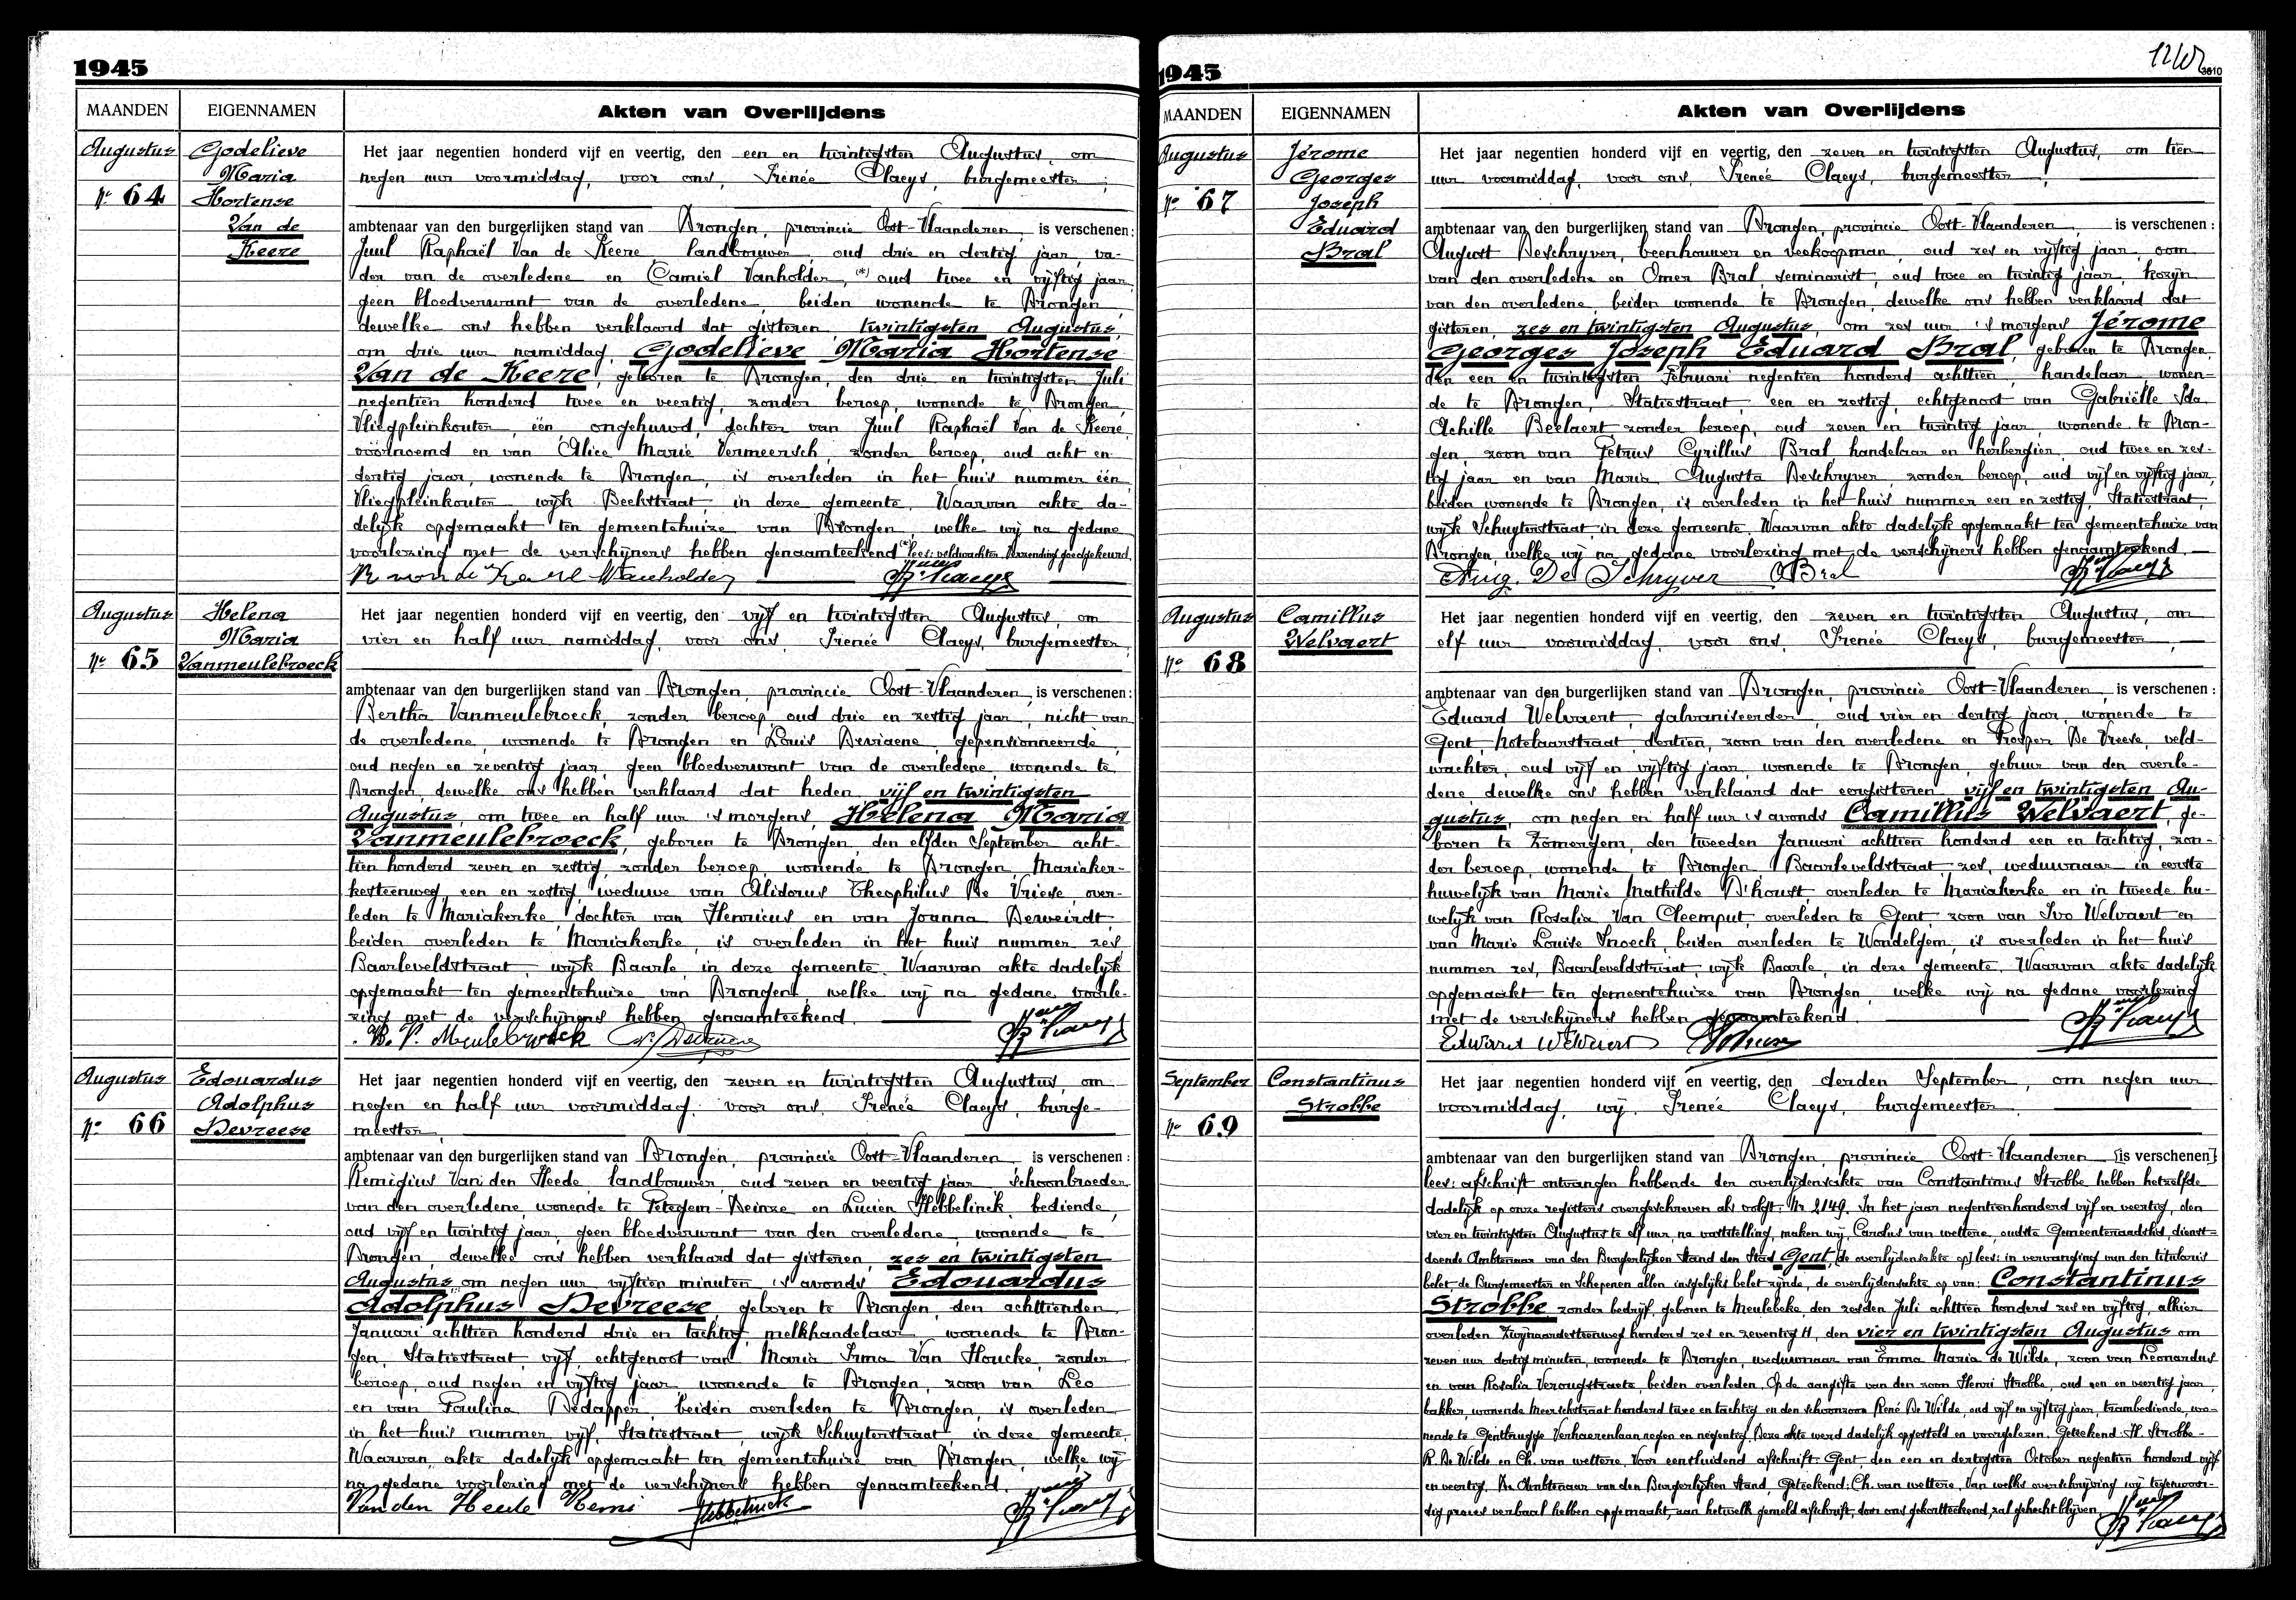 1945
MAANDEN EIGENNAMEN Akten van Overlijdens
Augustus
Nr 64
Godelieve
Maria
Hortense
Van de
Keere
Het jaar negentien honderd vijf en veertig, den een en twintigsten Augustus, om
negen uur voormiddag, voor ons, Irenée Claeys, burgemeester,
ambtenaar van den burgerlijken stand van Drongen, provincie Oost-Vlaanderen, is verschenen:
Juul Raphaël Van de Keere, landbouwer, oud drie en dertig jaar, va-
der van de overledene en Camiel Vanholder, (*) oud twee en vijftig jaar,
geen bloedverwant van de overledene, beiden wonende te Drongen,
dewelke ons hebben verklaard dat gisteren, twintigsten Augustus,
om drie uur namiddag, Godelieve Maria Hortense
Van de Keere, geboren te Drongen, den drie en twintigsten Juli
negentien honderd twee en veertig, zonder beroep, wonende te Drongen,
Vliegpleinkouter, één, ongehuwd, dochter van Juul Raphaël Van de Keere,
vóórnoemd en van Alice Marie Vermeersch, zonder beroep, oud acht en
dertig jaar, wonende te Drongen, is overleden in het huis nummer één
Vliegpleinkouter, wijk Beekstraat, in deze gemeente. Waarvan akte da-
delijk opgemaakt ten gemeentehuize van Drongen, welke wij na gedane
voorlezing met de verschijners hebben genaamteekend. (*) lees: veldwachter. Verzending goedgekeurd.
Augustus
Nr 65
Helena
Maria
Vanmeulebroeck
Het jaar negentien honderd vijf en veertig, den vijf en twintigsten Augustus, om
vier en half uur namiddag, voor ons, Irenée Claeys, burgemeester,
ambtenaar van den burgerlijken stand van Drongen, provincie Oost-Vlaanderen, is verschenen:
Bertha Vanmeulebroeck, zonder beroep, oud drie en zestig jaar, nicht van
de overledene, wonende te Drongen en Louis Deviaene, gepensionneerde,
oud negen en zeventig jaar, geen bloedverwant van de overledene, wonende te
Drongen, dewelke ons hebben verklaard dat heden, vijf en twintigsten
Augustus, om twee en half uur 's morgens, Helena Maria
Vanmeulebroeck, geboren te Drongen, den elfden September acht-
tien honderd zeven en zestig, zonder beroep, wonende te Drongen, Mariaker-
kesteenweg, een en zestig, weduwe van Alidorus Theophilus De Vriese, over-
leden te Mariakerke, dochter van Henricus en van Joanna Derweirdt,
beiden overleden te Mariakerke, is overleden in het huis nummer zes,
Baarleveldstraat, wijk Baarle, in deze gemeente. Waarvan akte dadelijk
opgemaakt ten gemeentehuize van Drongen, welke wij na gedane voorle-
zing met de verschijners hebben genaamteekend.
Augustus
Nr 66
Edouardus
Adolphus
Devreese
Het jaar negentien honderd vijf en veertig, den zeven en twintigsten Augustus, om
negen en half uur voormiddag, voor ons, Irenée Claeys, burge-
meester,
ambtenaar van den burgerlijken stand van Drongen, provincie Oost-Vlaanderen, is verschenen:
Remigius Van den Heede, landbouwer, oud zeven en veertig jaar, schoonbroeder
van den overledene, wonende te Petegem-Deinze en Lucien Hebbelinck, bediende,
oud vijf en twintig jaar, geen bloedverwant van den overledene, wonende te
Drongen, dewelke ons hebben verklaard dat gisteren, zes en twintigsten
Augustus, om negen uur vijftien minuten 's avonds Edouardus
Adolphus Devreese, geboren te Drongen, den achttienden
Januari achttien honderd drie en tachtig, melkhandelaar, wonende te Dron-
gen, Statiestraat, vijf, echtgenoot van Maria Irma Van Houcke, zonder
beroep, oud negen en vijftig jaar, wonende te Drongen, zoon van Leo
en van Paulina Dedapper, beiden overleden te Drongen, is overleden
in het huis nummer vijf, Statiestraat, wijk Schuyterstraat, in deze gemeente.
Waarvan akte dadelijk opgemaakt ten gemeentehuize van Drongen, welke wij
na gedane voorlezing met de verschijners hebben genaamteekend.
Van den Heede Remi Hebbelinck
1945
3610
MAANDEN EIGENNAMEN Akten van Overlijdens
Augustus
Nr 67
Jérome
Georges
Joseph
Eduard
Bral
Het jaar negentien honderd vijf en veertig, den zeven en twintigsten Augustus, om tien
uur voormiddag, voor ons, Irenée Claeys, burgemeester,
ambtenaar van den burgerlijken stand van Drongen, provincie Oost-Vlaanderen, is verschenen:
August Deschryver, beenhouwer en veekoopman, oud zes en vijftig jaar, oom
van den overledene en Omer Bral, seminarist, oud twee en twintig jaar, kozijn
van den overledene, beiden wonende te Drongen, dewelke ons hebben verklaard dat
gisteren, zes en twintigsten Augustus, om zes uur 's morgens Jérome
Georges Joseph Eduard Bral, geboren te Drongen,
den een en twintigsten Februari negentien honderd achttien, handelaar, wonen-
de te Drongen, Statiestraat, een en zestig, echtgenoot van Gabriëlle Ida
Achille Beelaert zonder beroep, oud zeven en twintig jaar, wonende te Dron-
gen, zoon van Petrus Cyrillus Bral, handelaar en herbergier, oud twee en zes-
tig jaar en van Maria Augusta Deschryver, zonder beroep, oud vijf en vijftig jaar,
beiden wonende te Drongen, is overleden in het huis nummer een en zestig, Statiestraat,
wijk Schuyterstraat, in deze gemeente. Waarvan akte dadelijk opgemaakt ten gemeentehuize van
Drongen, welke wij na gedane voorlezing met de verschijners hebben genaamteekend.
Aug. De Schryver OBral
Augustus
Nr 68
Camillus
Welvaert
Het jaar negentien honderd vijf en veertig, den zeven en twintigsten Augustus, om
elf uur voormiddag, voor ons, Irenée Claeys, burgemeester,
ambtenaar van den burgerlijken stand van Drongen, provincie Oost-Vlaanderen, is verschenen:
Eduard Welvaert, galvaniseerder, oud vier en dertig jaar, wonende te
Gent, Notelaarstraat, dertien, zoon van den overledene en Prosper De Vreese, veld-
wachter, oud vijf en vijftig jaar, wonende te Drongen, gebuur van den overle-
dene dewelke ons hebben verklaard dat eergisteren, vijf en twintigsten Au-
gustus, om negen en half uur 's avonds Camillus Welvaert, ge-
boren te Zomergem, den tweeden Januari achttien honderd een en tachtig, zon-
der beroep, wonende te Drongen, Baarleveldstraat, zes, weduwnaar in eerste
huwelijk van Marie Mathilde D'houst, overleden te Mariakerke en in tweede hu-
welijk van Rosalia Van Cleemput, overleden te Gent, zoon van Ivo Welvaert en
van Marie Louise Snoeck, beiden overleden te Wondelgem, is overleden in het huis
nummer zes, Baarleveldstraat, wijk Baarle, in deze gemeente. Waarvan akte dadelijk
opgemaakt ten gemeentehuize van Drongen, welke wij na gedane voorlezing
met de verschijners hebben genaamteekend.
Edward Welvaert
September
Nr 69
Constantinus
Strobbe
Het jaar negentien honderd vijf en veertig, den derden September, om negen uur
voormiddag, wij, Irenée Claeys, burgemeester
ambtenaar van den burgerlijken stand van Drongen, provincie Oost-Vlaanderen [is verschenen]
lees: afschrift ontvangen hebbende den overlijdensakte van Constantinus Strobbe hebben hetzelfde
dadelijk op onze registers overgeschreven als volgt: Nr 2149. In het jaar negentienhonderd vijf en veertig, den
vier en twintigsten Augustus te elf uur, na vaststelling, maken wij, Carolus van wettere, oudste Gemeenteraadslid, dienst-
doende Ambtenaar van den Burgerlijken Stand den Stad Gent, [de overlijdensakte op] lees: in vervanging van den titularis
belet, de Burgemeester en Schepenen allen insgelijks belet zijnde, de overlijdensakte op van: Constantinus
Strobbe, zonder bedrijf, geboren te Meulebeke, den zesden Juli achttien honderd zes en vijftig, alhier
overleden Zwijnaardesteenweg honderd zes en zeventig H, den vier en twintigsten Augustus om
zeven uur dertig minuten, wonende te Drongen, weduwnaar van Emma Maria de Wilde, zoon van Leonardus
en van Rosalia Verougstraete, beiden overleden. Op de aangifte van den zoon Henri Strobbe, oud een en veertig jaar,
bakker, wonende Meerschstraat honderd twee en tachtig en den schoonzoon René De Wilde, oud vijf en vijftig jaar, trambediende, wo-
nende te Gentbrugge Verhaerenlaan negen en negentig. Deze akte werd dadelijk opgesteld en voorgelezen. Geteekend: H. Strobbe-
R. De Wilde en Ch. van wettere. Voor eensluidend afschrift: Gent, den een en dertigsten October negentien honderd vijf
en veertig. De Ambtenaar van den Burgerlijken Stand, Geteekend: Ch. van wettere. Van welke overschrijving wij tegenwoor-
dig proces verbaal hebben opgemaakt, aan hetwelk gemeld afschrift, door ons gekortteekend, zal gehecht blijven.